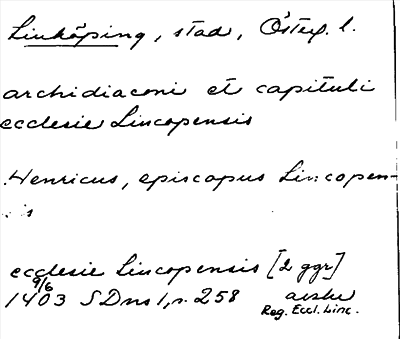 Linköping, stad, Österg. l.
archidiaconi et capituli
ecclesie Lincopensis
Henricus, episcopus Lincopen-
sis
ecclesie Lincopensis [2 ggr]
9/6
1403 SDns 1, s. 258 avskr
Reg. Eccl. Linc.